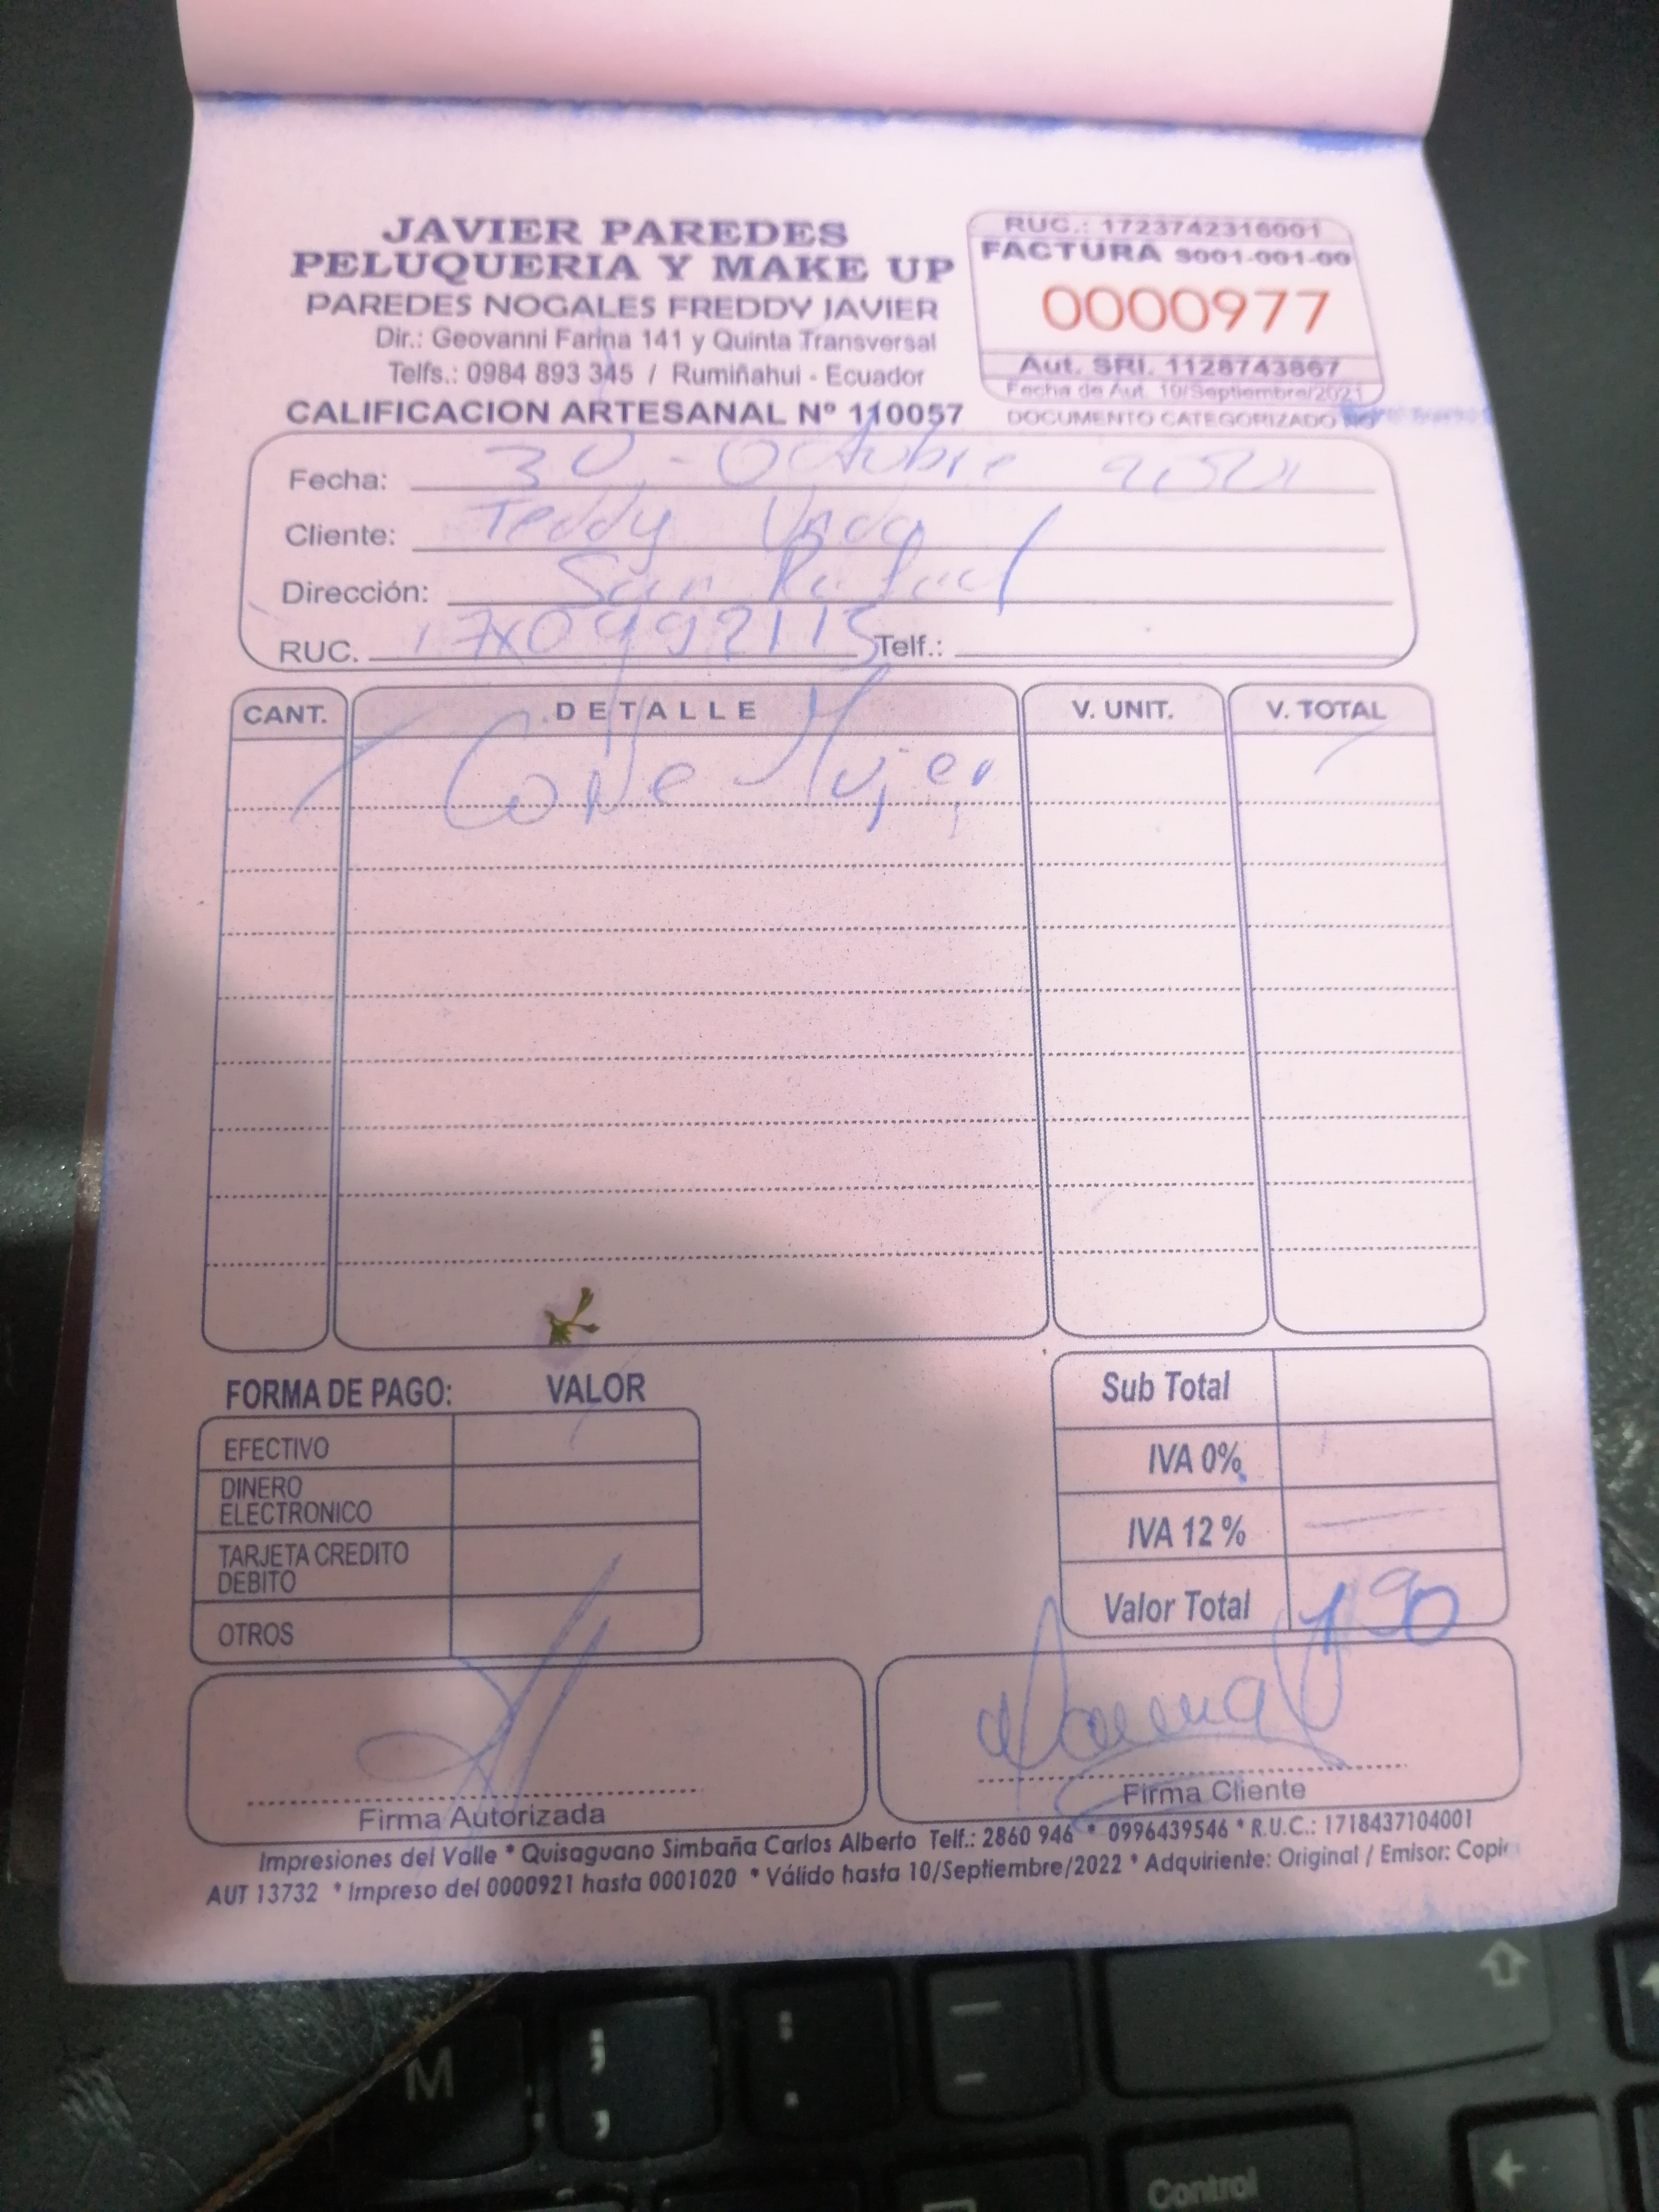 JAVIER PAREDES
PELUQUERIA Y MAKE UP
PAREDES NOGALES FREDDY JAVIER
Dir.: Geovanni Farina 141 y Quinta Transversal
Telfs.: 0984 893 345 / Rumiñahui - Ecuador
CALIFICACION ARTESANAL Nº 110057
RUC.: 1723742316001
FACTURA S001-001-00
0000977
Aut. SRI. 1128743867
Fecha de Aut. 10/Septiembre/2021
DOCUMENTO CATEGORIZADO NO
Fecha: 30 - Octubre 2021
Cliente: Teddy
Dirección: San Rafael
RUC.
Telf.:
CANT. DETALLE V. UNIT. V. TOTAL
Corte Mujer
FORMA DE PAGO: VALOR
EFECTIVO
DINERO ELECTRONICO
TARJETA CREDITO DEBITO
OTROS
Sub Total
IVA 0%
IVA 12 %
Valor Total
Firma Autorizada
Firma Cliente
Impresiones del Valle * Quisaguano Simbaña Carlos Alberto Telf.: 2860 946 * 0996439546 * R.U.C.: 1718437104001
AUT 13732 * Impreso del 0000921 hasta 0001020 * Válido hasta 10/Septiembre/2022 * Adquiriente: Original / Emisor: Copia
M
;
,
:
.
_
-
Control